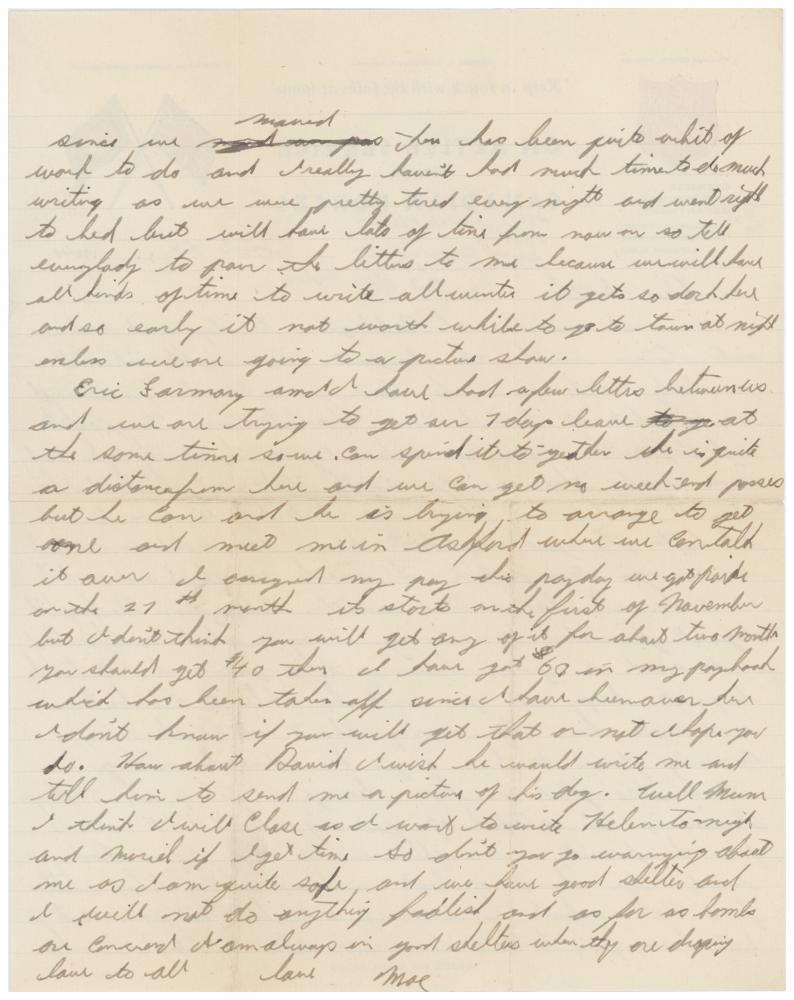 moved
since we then has been quite abit of
work to do and I really haven't had much time to do much
writing as we were pretty tired every night and went right
to bed but will have lots of time from now on so tell
everybody to pour the letters to me because we will have
all kinds of time to write all winter it gets so dark here
and so early it not worth while to go to town at night
unless we are going to a picture show.
Eric and I have had a few letters between us
and we are trying to get our 7 days leave to go at
the same time so we can spend it to-gether he is quite
a distance from here and we can get no week-end passes
but he can and he is trying to arrange to get
one and meet me in Ashford where we can talk
it over I assigned my pay this payday we got paid
on the 27th month it starts on the first of November
but I don't think you will get any of it for about two months
you should get $40 then I have got $60 in my paybook
which has been taken off since I have been over here
I don't know if you will get that or not I hope you
do. How about David I wish he would write me and
tell him to send me a picture of his dog. Well Mum
I think I will close as I want to write Helen to-night
and Muriel if I get time so don't you go worrying about
me as I am quite safe, and we have good shelter and
I will not do anything foolish and as for as bombs
are concerned I am always in good shelters when they are droping
love to all love Moe